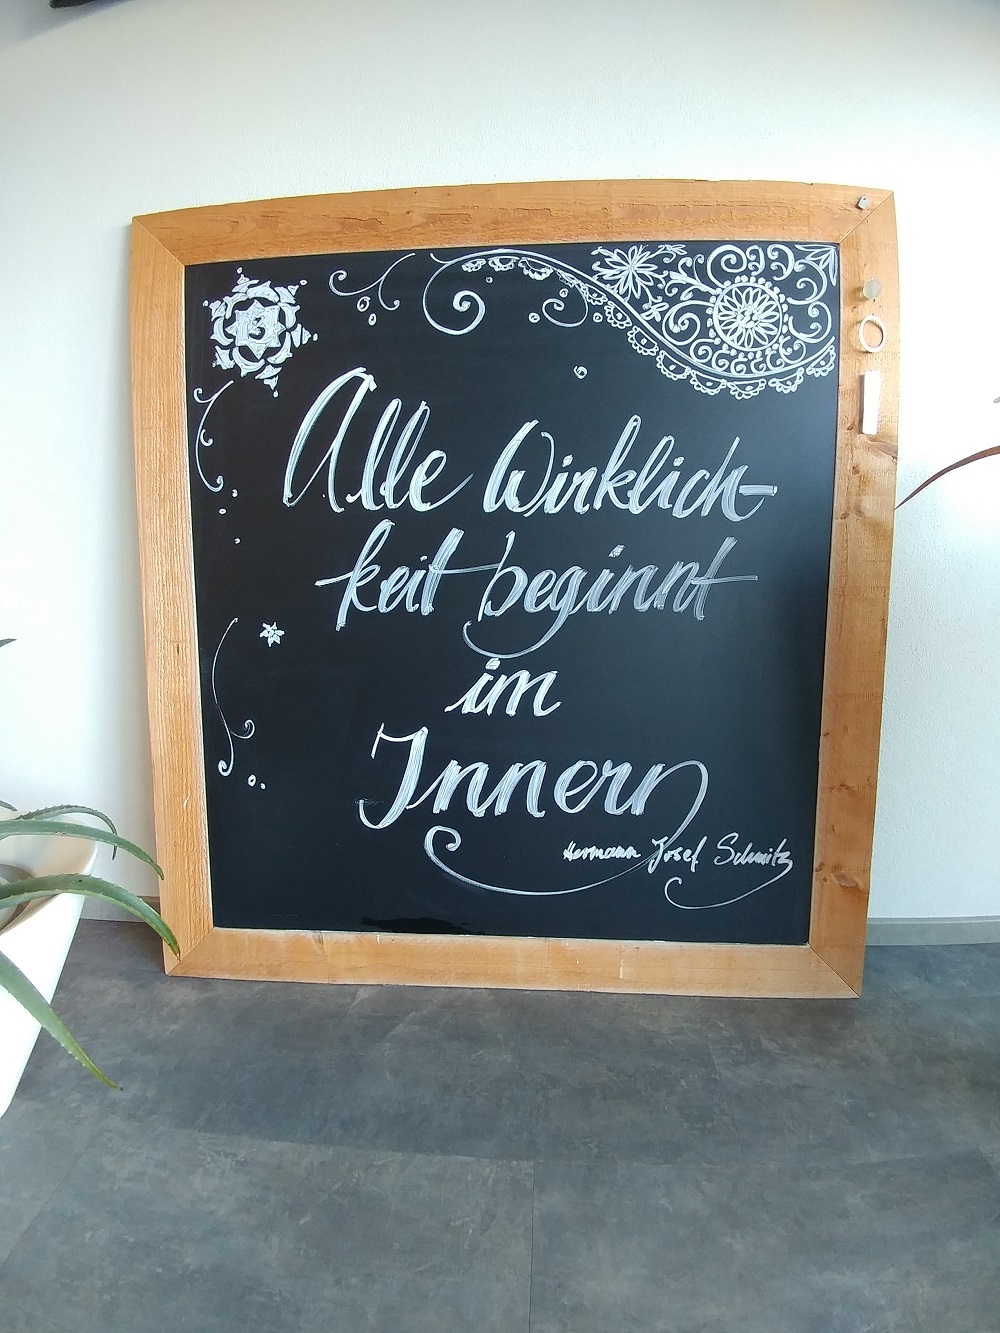 3
Alle Wirklich-
keit beginnt
im
Innern
Hermann Josef Schmitz